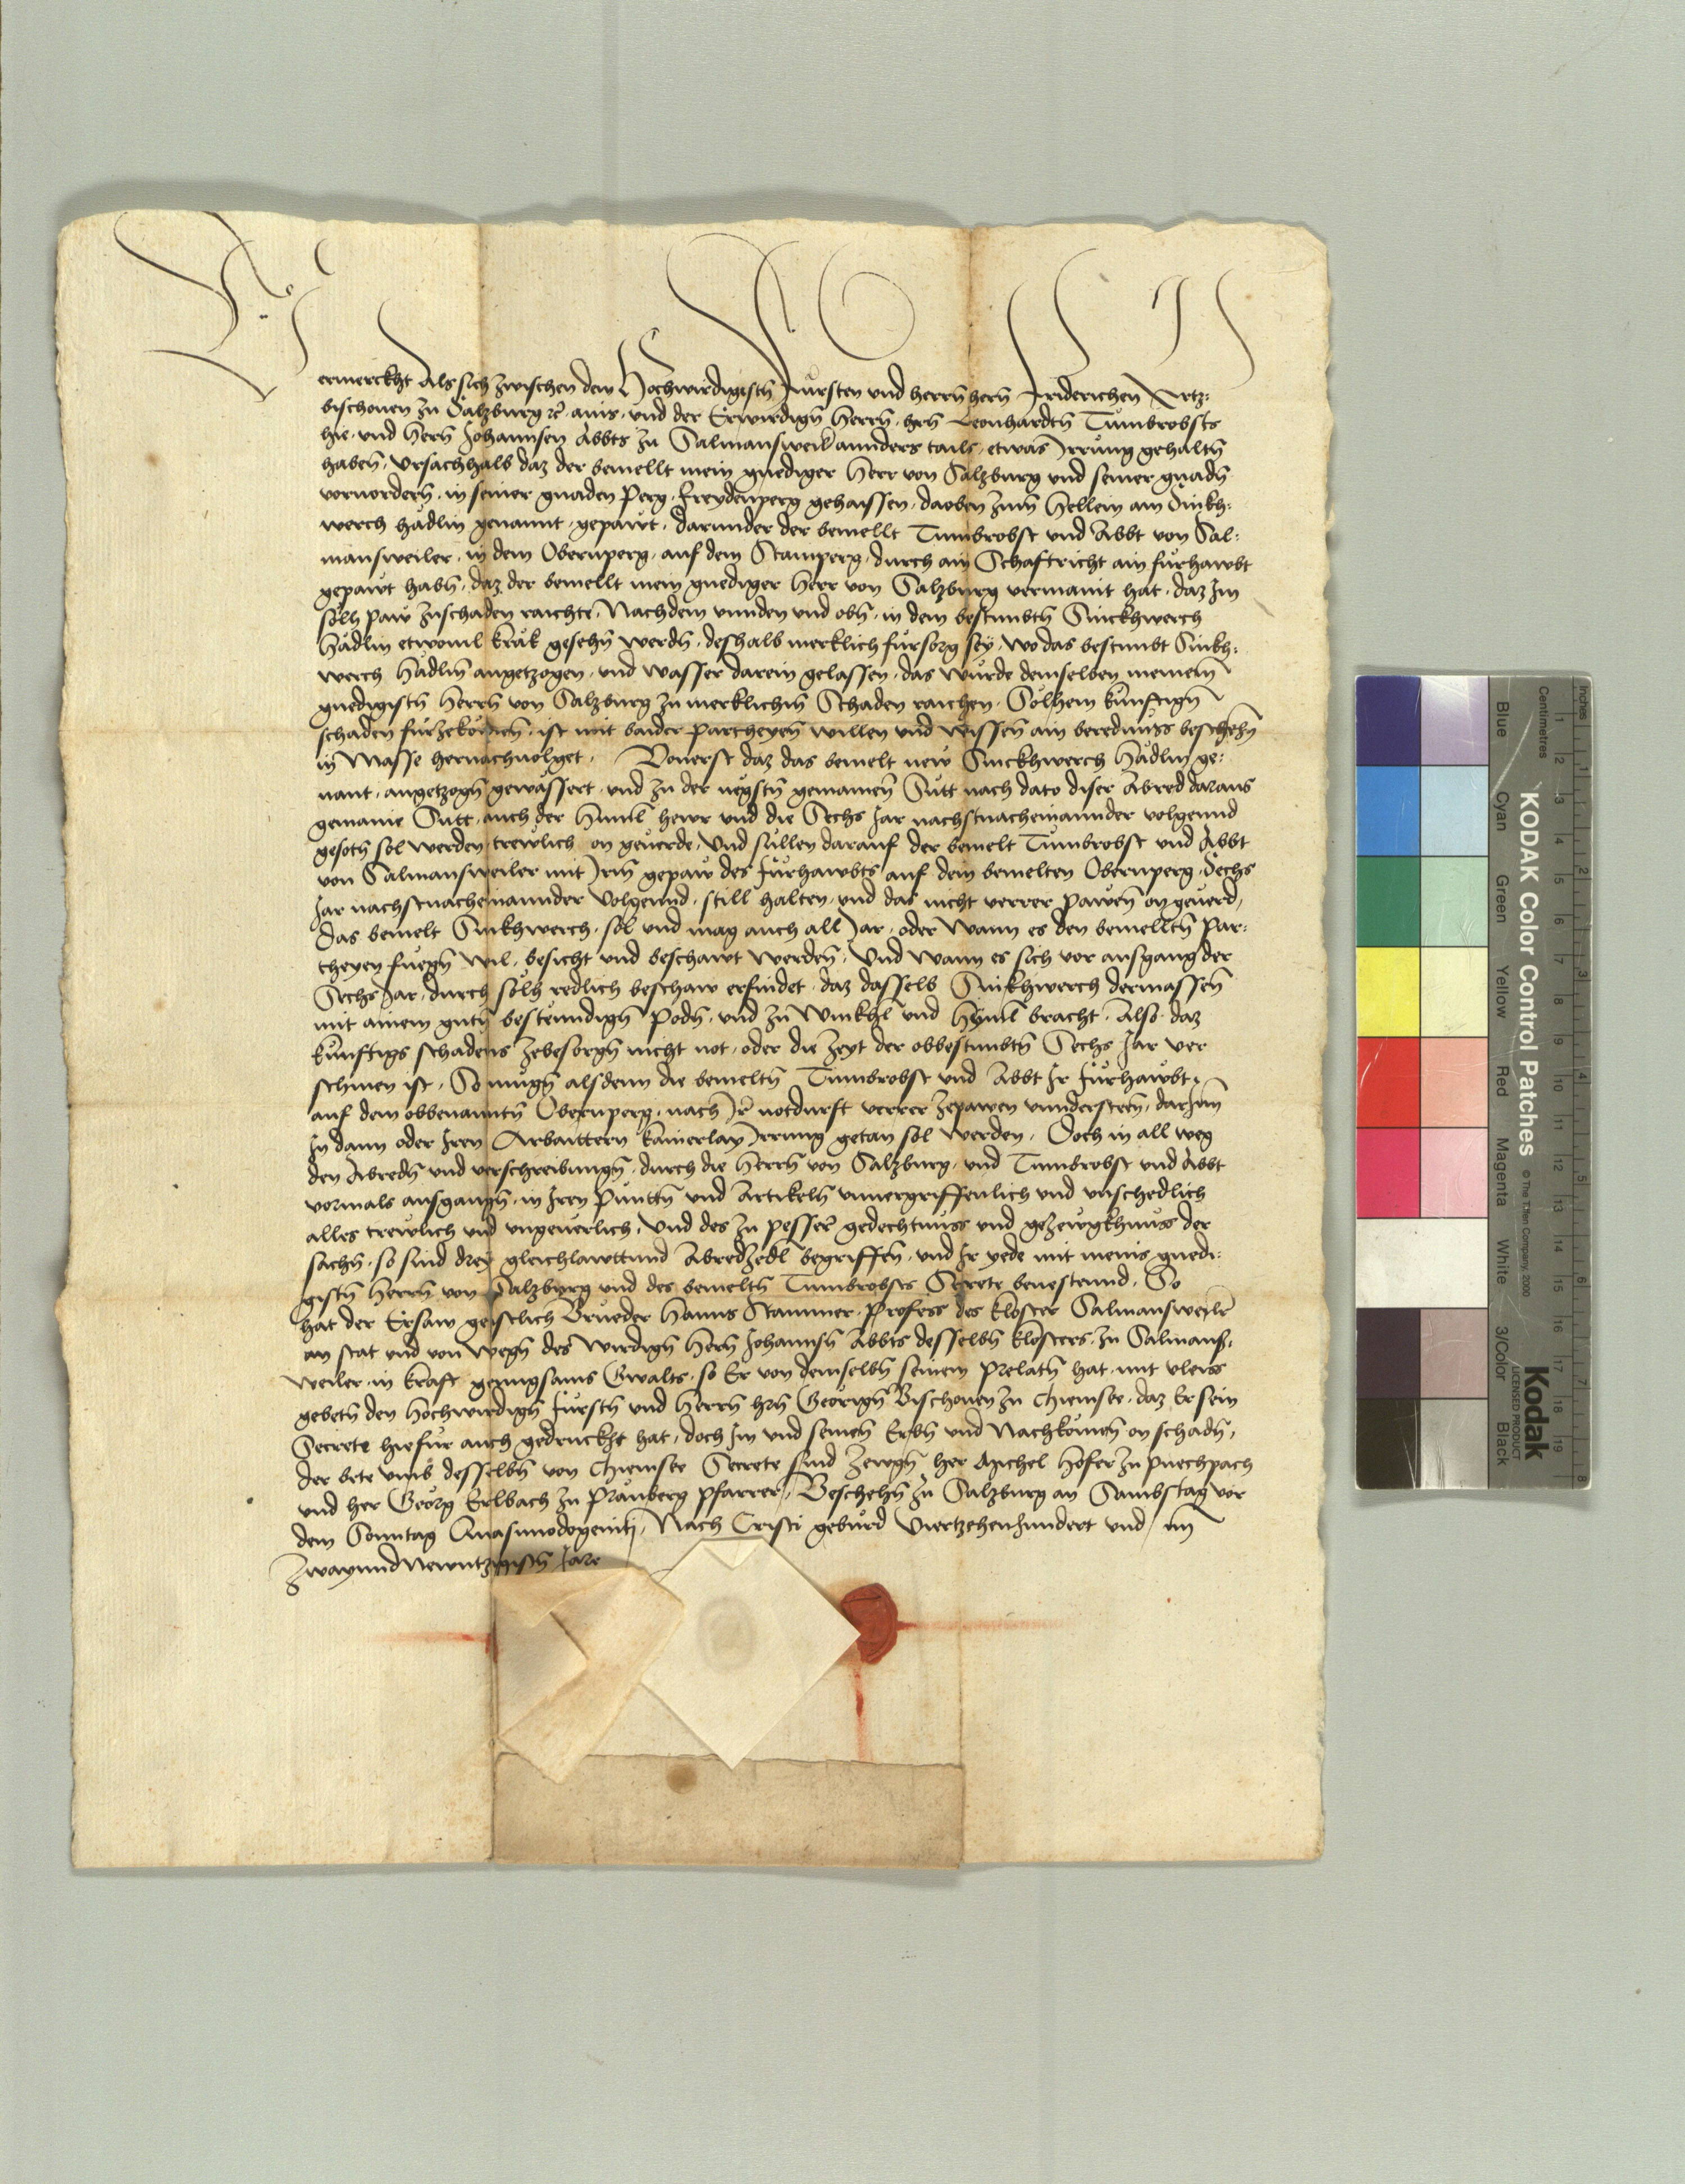 Vermerckht Als sich zwischen dem Hochwirdigistn Fürsten und herrn hern Friderichen Ertz-
bischouen zu Saltzburg etc. ains, und der Erwirdign herrn, hrn Leonhardtn Tumbrobsts
hie, und hern Johannsen Abbts zu Salmansweil annders tails, etwas Irrung gehaltn
haben, Vrsachhalb daz der bemellt mein gnediger herr von Saltzburg und seiner gnadn
vorvordern, in seiner gnaden perg, Freydenperg gehaissen, daoben zum hellein ain Sinkh-
werch hädlin genannt, gepawt, darunder der bemellt Tumbrobst und Abbt von Sal-
mansweiler, in dem Obernperg, auf dem Stamperg, durch ain Schaftricht ain fürhawbt
gepawt habn, daz der bemellt mein gnediger herr von Saltzburg vermaint hat, daz Im
sölh paw zuschaden raichte, Nachdem unnden und obn, in dem bestimbtn Sinckhwerch
hädlin etwovil kräk gesehn werdn, deshalb merklich fürsorg sey, wo das bestimbt Sinkh-
werch hädlin angetzogen, und wasser darein gelassen, das würde demselben meinem
gnedigistn herrn von Saltzburg zu merklichm Schaden raichen, Solhem künftign
schaden fürzekomen, ist mit baider partheyen willen und wissen ain berednüss beschehn
in Masse hernachvolget, Vonerst daz das bemelt new Sinckhwerch hädlin ge-
nant, angetzogn gewässert, und zu der negstn gemainen Sütt nach dato diser Abred daraus
gemaine Sütt, auch der himl hewr und die Sechs Jar nachstnacheinannder volgennd
gesotn sol werden trewlich on geuerde, Und süllen darauf der bemelt Tumbrobst und Abbt
von Salmansweiler mit Irm gepaw des fürhawbts auf dem bemelten Obernperg, Sechs
Jar nachstnacheinannder volgennd, still halten, und das nicht verrer pawen on geuerd,
das bemelt Sinkhwerch, sol und mag auch all Jar, oder wann es den bemelltn par-
theyen fuegn wil, besicht und beschawt werden, Und wann es sich vor ausgang der
Sechs Jar, durch sölh redlich beschaw erfindet, daz dasselb Sinkhwerch dermassen
mit ainem gutn bestenndign podn, und zu winkhl und hyml bracht, Also daz
künftigs schadens zebesorgn nicht not, oder die zeyt der obbestimbtn Sechs Jar ver
schinen ist, So mügn alsdenn die bemeltn Tumbrobst und Abbt Ir fürhawbt,
auf dem obbenanntn Obernperg, nach Ir notdurft verrer zepawen unndersteen, darInn
In dann oder Iren Arbaittern kainerlay Irrung getan sol werden, Doch in all weg
den Abredn und verschreibungn, durch die herrn von Saltzburg, und Tumbrobst und Abbt
vormals ausgangn, in Iren puncttn und Artikeln unuergriffenlich und unschedlich
alles trewlich und ungeuerlich, Und des zu pesser gedechtnüss und gezewgkhnüss der
sachn, so sind drey gleichlawttund Abredzedl begriffen, und Ir yede mit meins gnedi-
gistn herrn von Saltzburg und des bemeltn Tumbrobsts Secrete beuestennd, So
hat der Ersam geistlich Brueder Hanns Stammer, Profess des kloster Salmansweiler
an stat und von wegn des wirdign hern Johannsn Abbts desselbn klosters, zu Salmans-
weiler, in kraft genugsams Gwalts, so Er von demselbn seinem prelatn hat, mit vleiss
gebetn den hochwirdign Fürstn und herrn hrn Georign Bischouen zu Chiemsee, daz Er sein
Secrete hiefür auch gedruckht hat, doch Im und seinen Erbn und Nachkomen on schadn,
der bete umb desselbn von Chiemsee Secrete sind zewgn her Michel hofer zu puechpach
und her Georg Erlbach zu pramberg pfarrer, Beschehn zu Saltzburg an Sambstag vor
dem Sonntag Quasimodogeniti, Nach Cristi geburd Viertzehenhundert und im
Zwayundnewntzigistn Jare
KODAK Color Control Patches
© The Tiffen Company, 2000
Kodak
LICENSED PRODUCT
Inches
Centimetres
Blue
Cyan
Green
Yellow
Red
Magenta
White
3/Color
Black